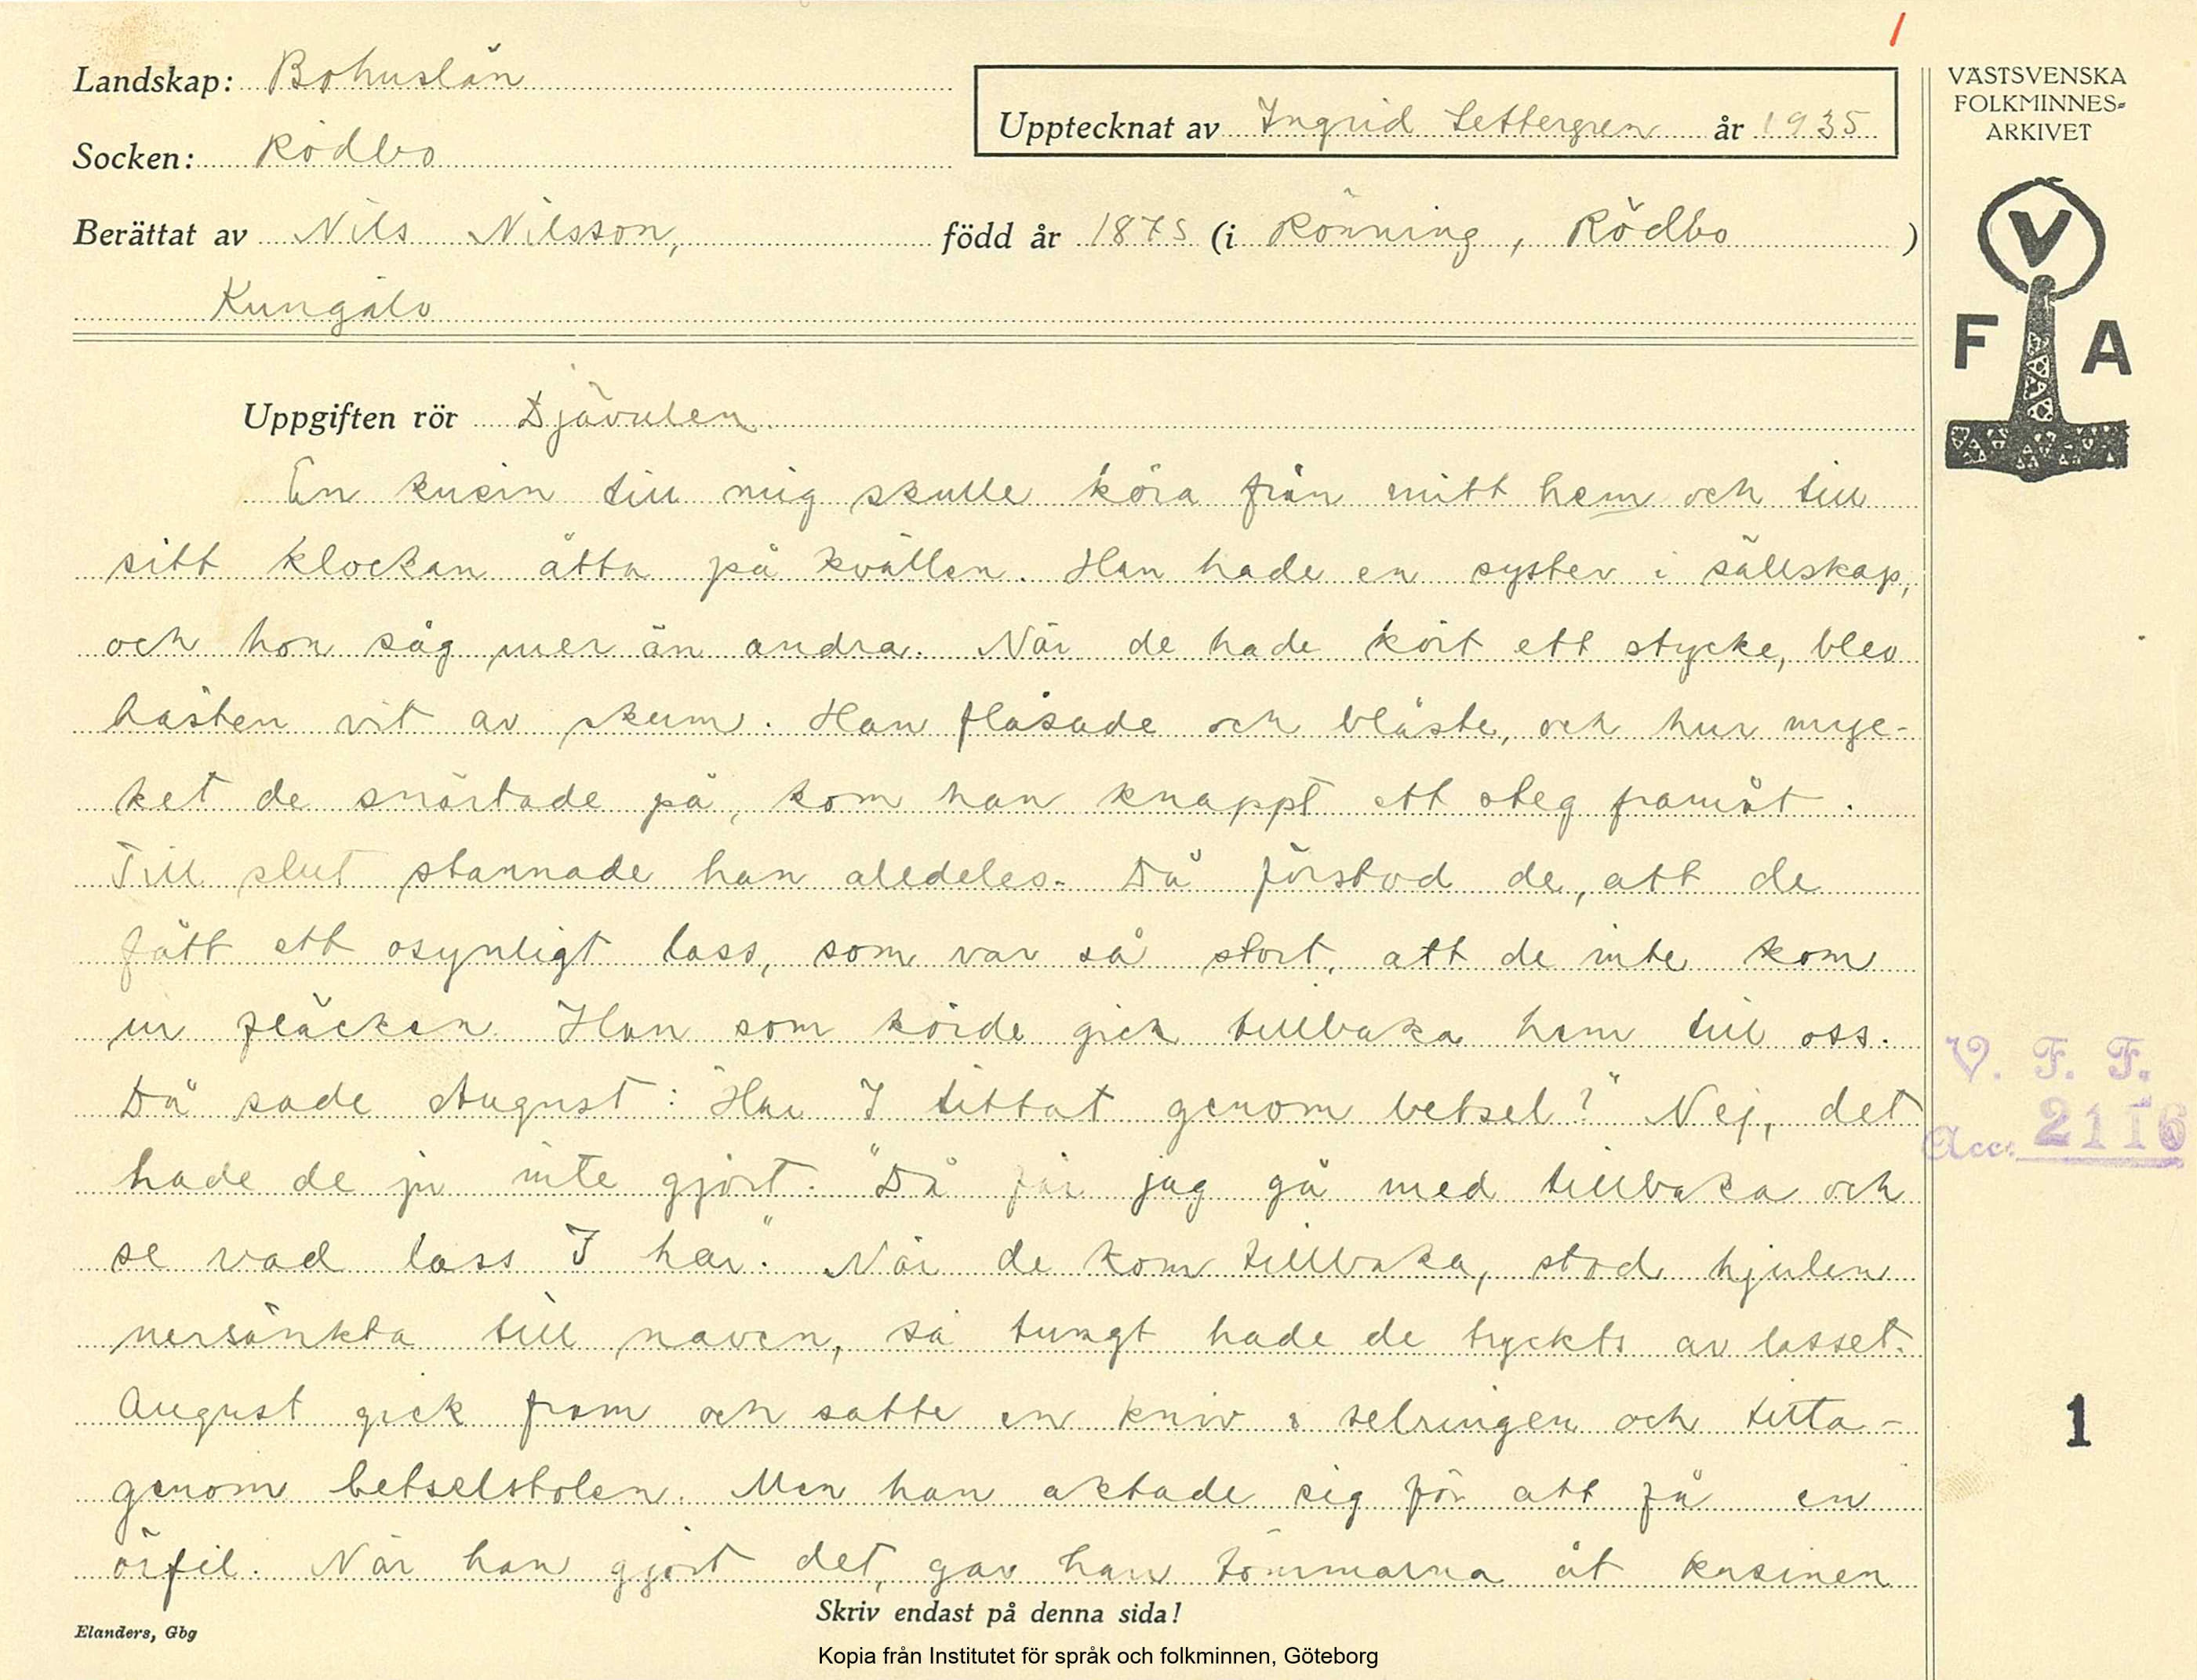 Landskap: Bohuslän
Upptecknat av Ingrid Settergren år 1935
Socken: Rödbo
Berättat av Nils Nilsson, född år 1875 (i Rönning, Rödbo )
Kungälv
VÄSTSVENSKA
FOLKMINNES-
ARKIVET
V
F A
Uppgiften rör Djävulen.
En kusin till mig skulle köra från mitt hem och till
sitt klockan åtta på kvällen. Han hade en syster i sällskap,
och hon såg mer än andra. När de hade kört ett stycke, blev
hästen vit av skum. Han flåsade och blåste, och hur myc-
ket de snärtade på, kom han knappt ett steg framåt.
Till slut stannade han alldeles. Då förstod de, att de
fått ett osynligt lass, som var så stort, att de inte kom
ur fläcken. Han som körde gick tillbaka hem till oss.
Då sade August: "Har I tittat genom betsel?" Nej, det
hade de ju inte gjort. "Då får jag gå med tillbaka och
se vad lass I har." När de kom tillbaka, stod hjulen
nersänkta till naven, så tungt hade de tryckts av lasset.
August gick fram och satte en kniv i selringen och titta-
genom betselstolen. Men han aktade sig för att få en
örfil. När han gjort det, gav han tömmarna åt kusinen
V. F. F.
Acc. 2116
1
Skriv endast på denna sida!
Elanders, Gbg
Kopia från Institutet för språk och folkminnen, Göteborg